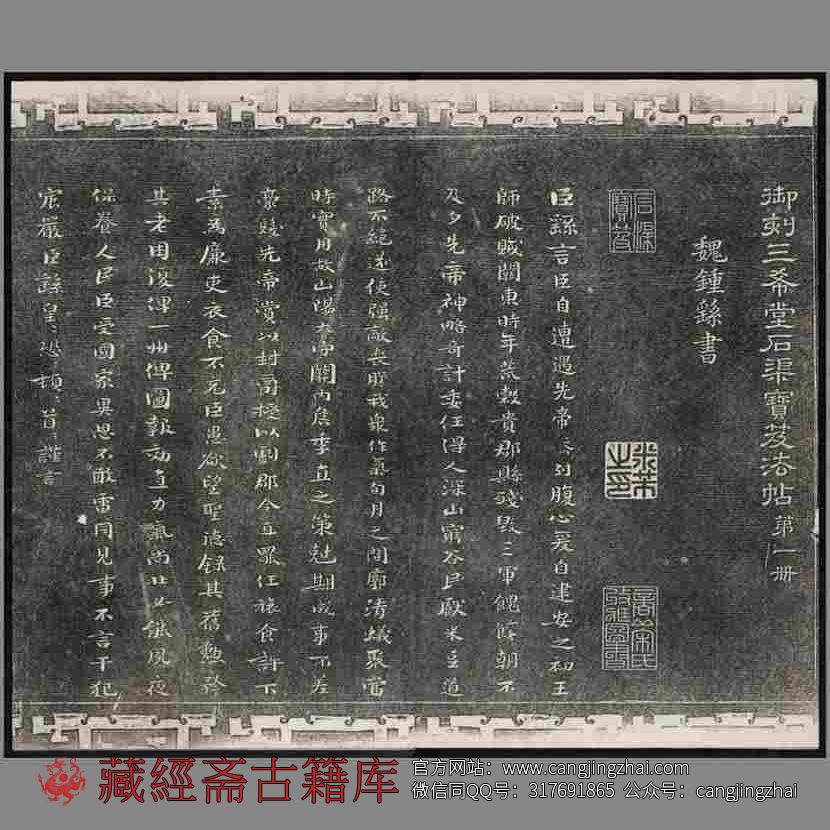 御刻三希堂石渠寶笈法帖第一冊
魏鍾繇書
石渠寶笈
米芾之印
臣繇言臣自遭遇先帝忝列腹心爰自建安之初王
師破賊關東時年荒穀貴郡縣殘毀三軍餽饟朝不
及夕先帝神略奇計委任得人深山窮谷民獻米豆道
路不絕遂使強敵喪膽我衆作氣旬月之間廓清蟻聚當
時實用故山陽太守關內侯季直之策尅期成事不差
豪髮先帝賞以封爵授以劇郡今直罷任旅食許下
素爲廉吏衣食不充臣愚欲望聖德錄其舊勳矜
其老困復俾一州俾圖報効直力氣尚壯必能夙夜
保養人民臣受國家異恩不敢雷同見事不言干犯
宸嚴臣繇皇〻恐〻頓〻首〻謹言
藏經斋古籍库
官方网站：www.cangjingzhai.com
微信同QQ号：317691865 公众号：cangjingzhai